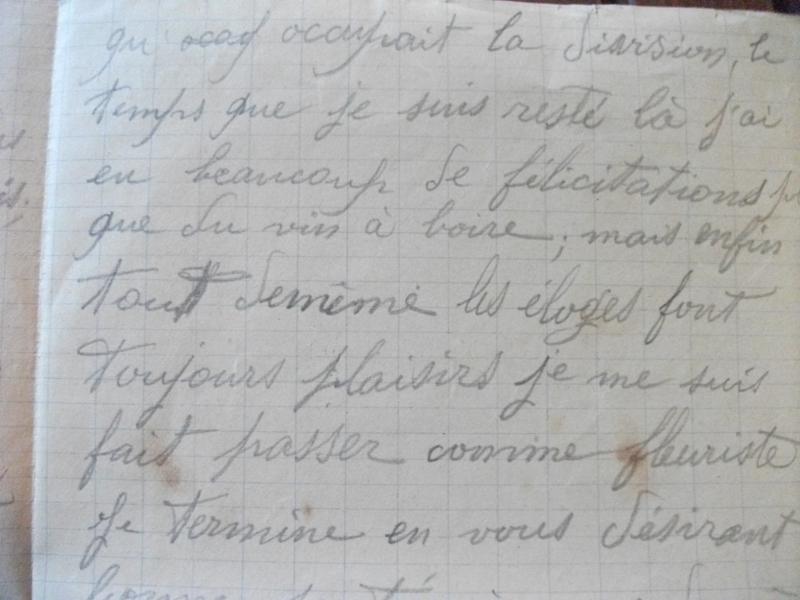 occupait la division, le
temps que je suis resté là j'ai
eu beaucoup de félicitations
que du vin à boire; mais enfin
tout demême les éloges font
toujours plaisirs je me suis
fait passer comme fleuriste
Je termine en vous désirant